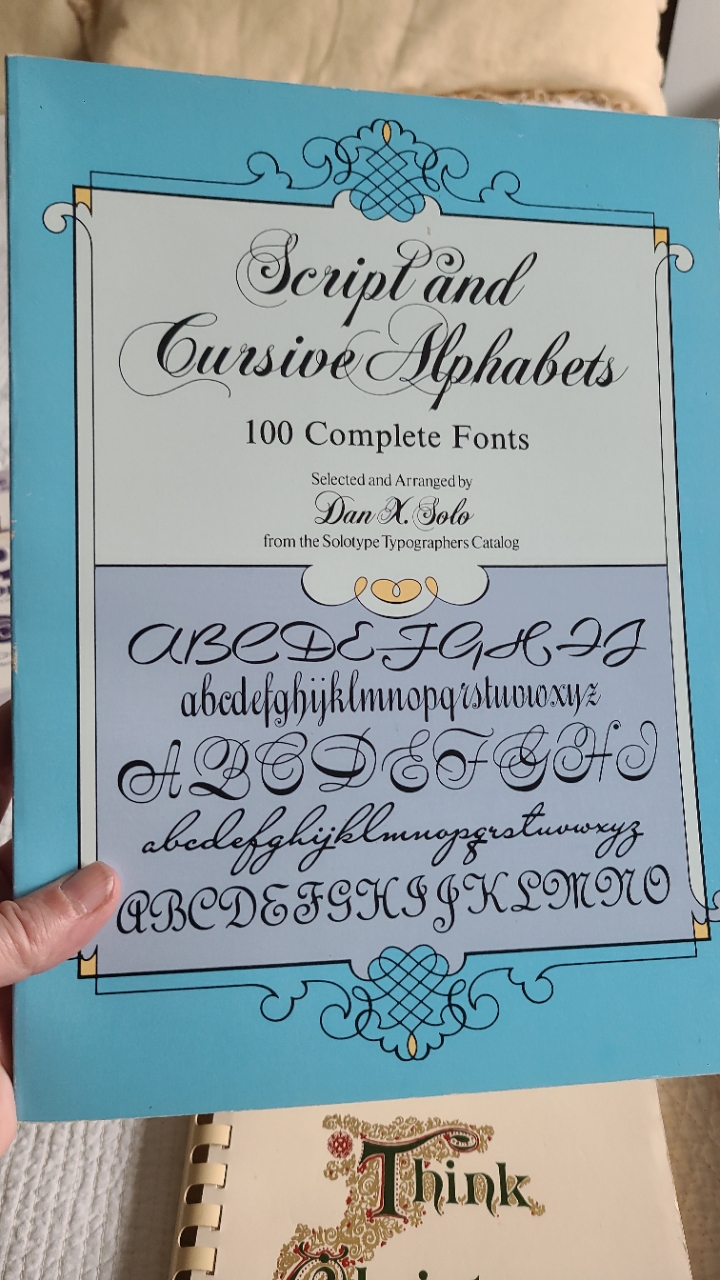 Script and
Cursive Alphabets
100 Complete Fonts
Selected and Arranged by
Dan X. Solo
from the Solotype Typographers Catalog
ABCDEFGHIJ
abcdefghijklmnopqrstuvwxyz
ABCDEFGHI
abcdefghijklmnopqrstuvwxyz
ABCDEFGHIJKLMNO
Think